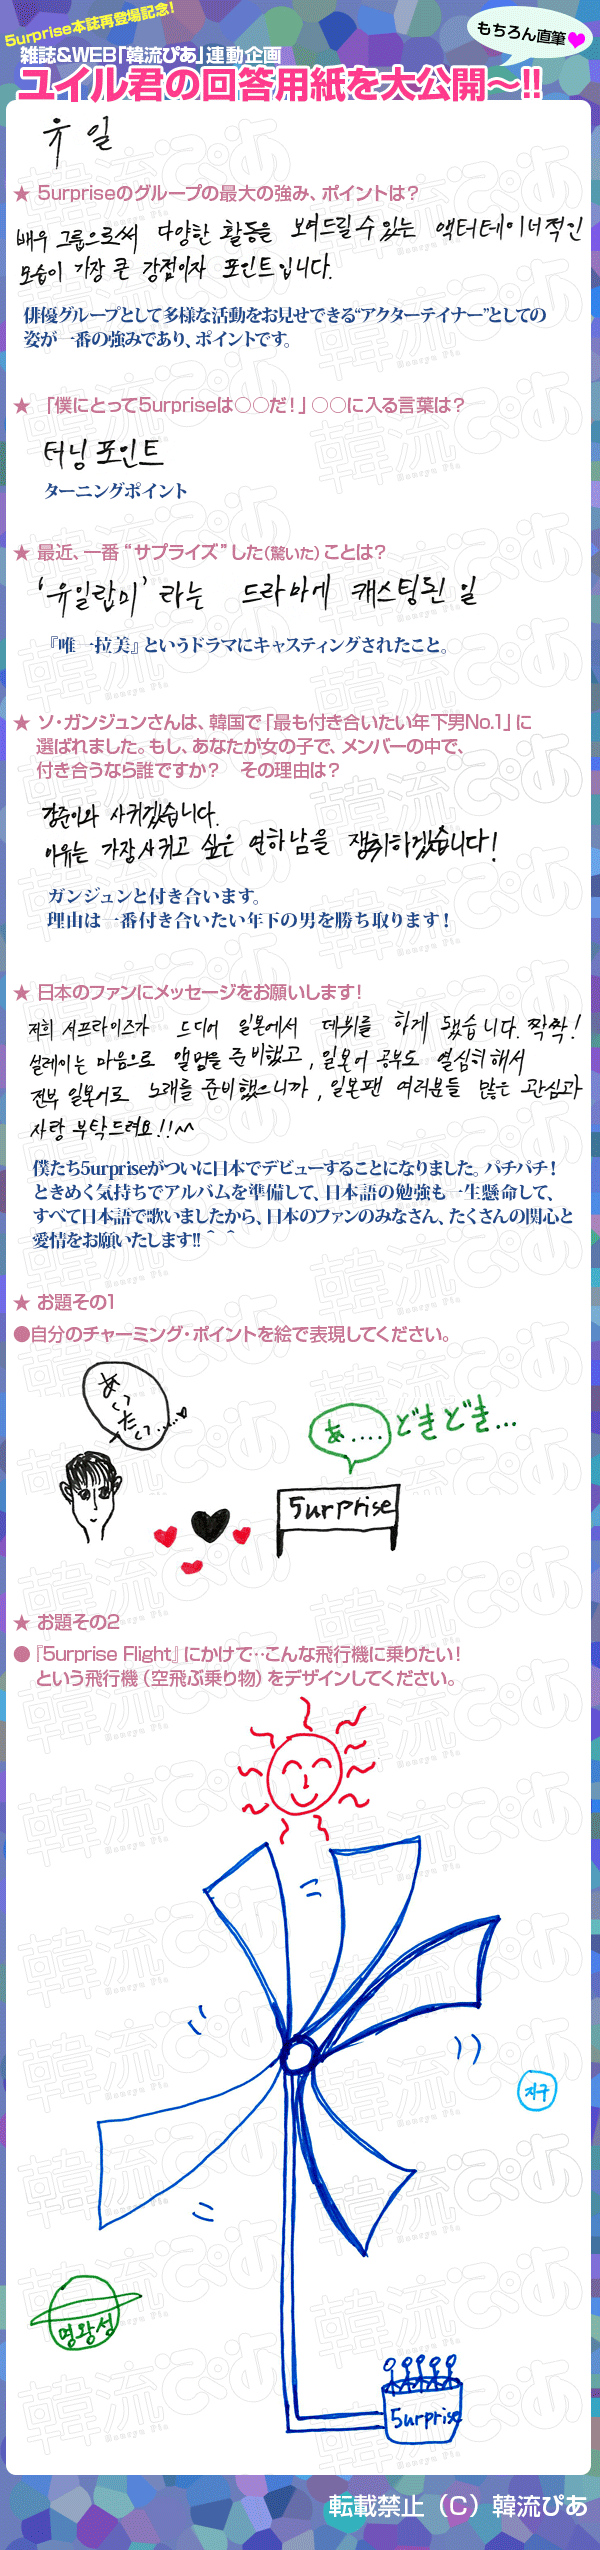 5urprise本誌再登場記念!
もちろん直筆
雑誌&WEB「韓流ぴあ」連動企画
ユイル君の回答用紙を大公開～!!
유일
★ 5urpriseのグループの最大の強み、ポイントは?
배우 그룹으로써 다양한 활동을 보여드릴 수 있는 액터테이너적인
모습이 가장 큰 강점이자 포인트입니다.
俳優グループとして多様な活動をお見せできる“アクターテイナー”としての
姿が一番の強みであり、ポイントです。
★ 「僕にとって5urpriseは○○だ!」○○に入る言葉は?
터닝 포인트
ターニングポイント
★ 最近、一番“サプライズ”した(驚いた)ことは?
‘유일랍미’ 라는 드라마에 캐스팅된 일
『唯一拉美』というドラマにキャスティングされたこと。
★ ソ・ガンジュンさんは、韓国で「最も付き合いたい年下男No.1」に
選ばれました。もし、あなたが女の子で、メンバーの中で、
付き合うなら誰ですか? その理由は?
강준이와 사귀겠습니다.
이유는 가장 사귀고 싶은 연하남을 쟁취하겠습니다!
ガンジュンと付き合います。
理由は一番付き合いたい年下の男を勝ち取ります!
★ 日本のファンにメッセージをお願いします!
저희 서프라이즈가 드디어 일본에서 데뷔를 하게 됐습니다. 짝짝!
설레이는 마음으로 앨범을 준비했고, 일본어 공부도 열심히 해서
전부 일본어로 노래를 준비했으니까, 일본팬 여러분들 많은 관심과
사랑 부탁드려요!!^^
僕たち5urpriseがついに日本でデビューすることになりました。パチパチ!
ときめく気持ちでアルバムを準備して、日本語の勉強も一生懸命して、
すべて日本語で歌いましたから、日本のファンのみなさん、たくさんの関心と
愛情をお願いいたします!! ^_^
★ お題その1
●自分のチャーミング・ポイントを絵で表現してください。
あいたい.....
あ.... どきどき...
5urprise
★ お題その2
●『5urprise Flight』にかけて…こんな飛行機に乗りたい!
という飛行機(空飛ぶ乗り物)をデザインしてください。
지구
명왕성
5urprise
転載禁止（C）韓流ぴあ